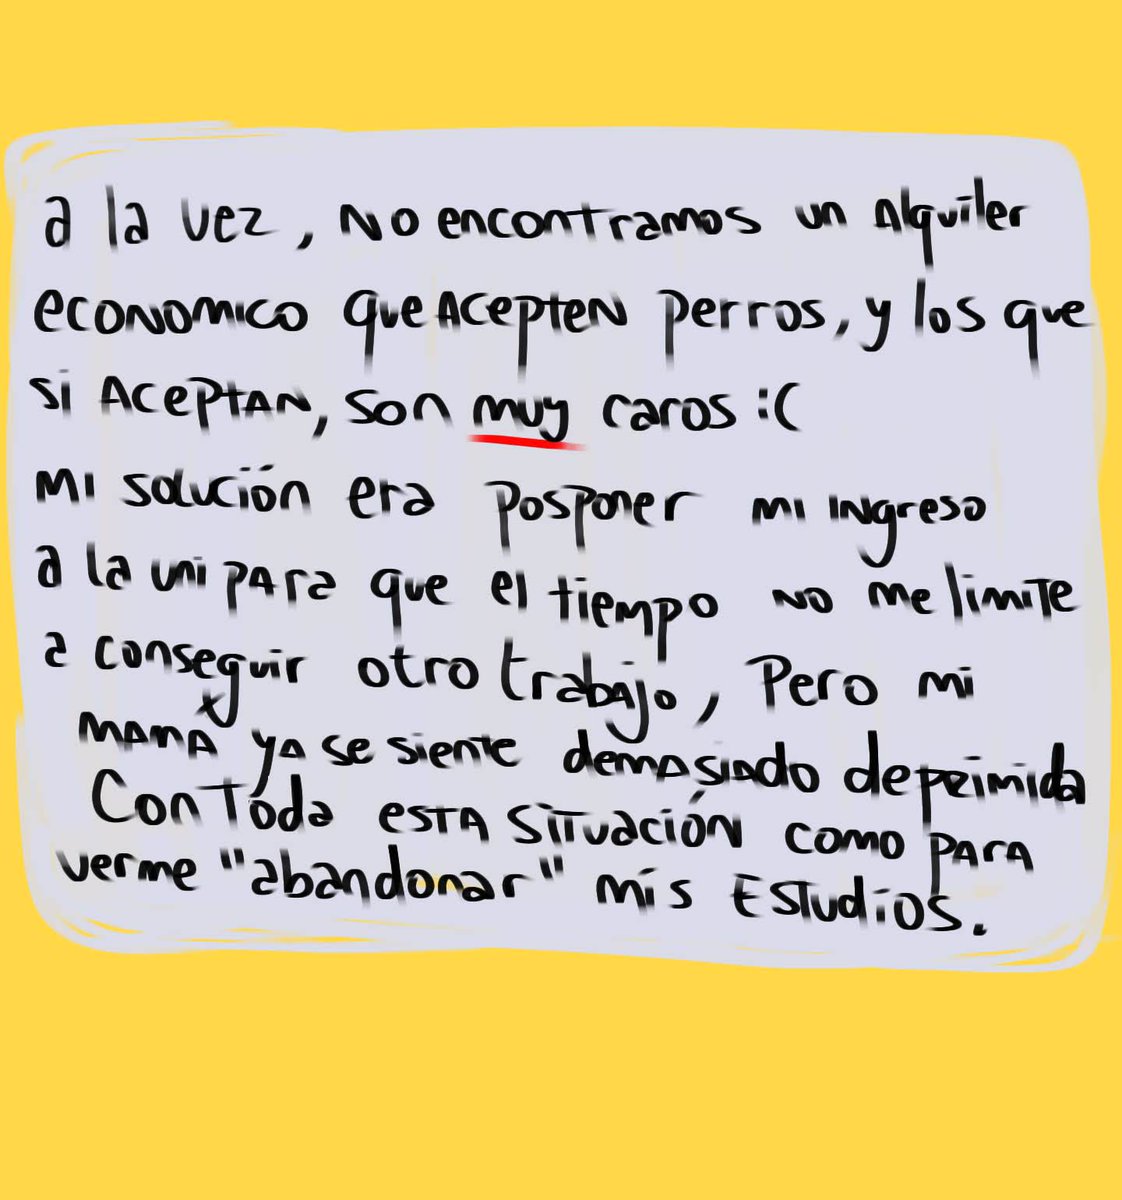 a la vez, no encontramos un Alquiler
economico que Acepten perros, y los que
si Aceptan, son muy caros :(
mi solución era posponer mi ingreso
a la uni para que el tiempo no me limite
a conseguir otro trabajo, Pero mi
mamá ya se siente demasiado deprimida
Con Toda esta situación como para
verme "abandonar" mis Estudios.